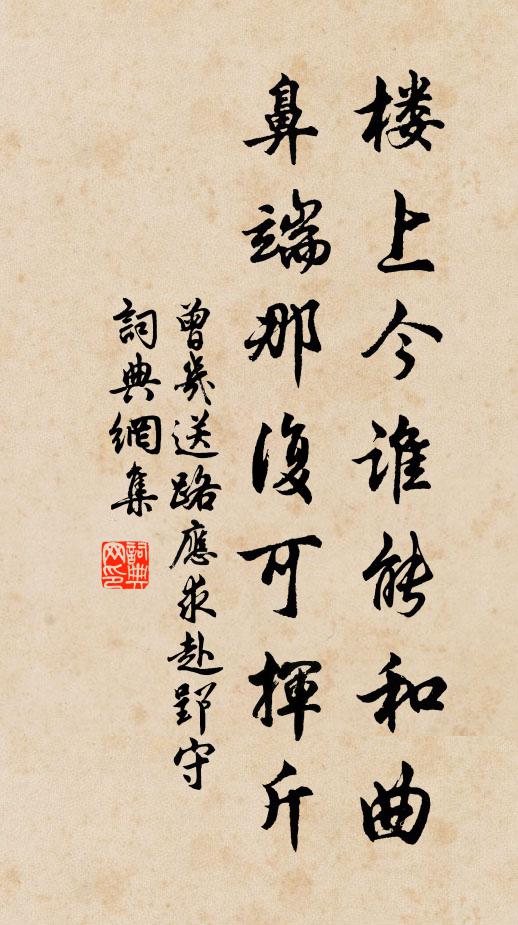 楼上今谁能和曲
鼻端那復可揮斤
曾幾送路應求赴郢守
詞典網集
詞典網印